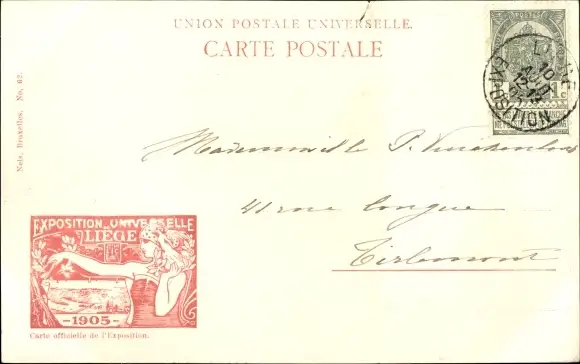 UNION POSTALE UNIVERSELLE.
CARTE POSTALE
1c
LIEGE
EXPOSITION
10
AOUT
Nels, Bruxelles, No. 62.
Mademoiselle P.
41 rue longue
Tirlemont
EXPOSITION UNIVERSELLE
LIEGE
-1905-
Carte officielle de l'Exposition.